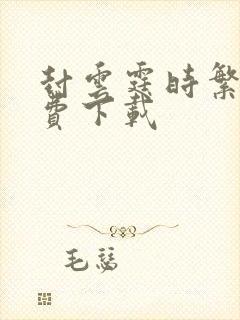 封雲霆時繁
費下載
毛慈